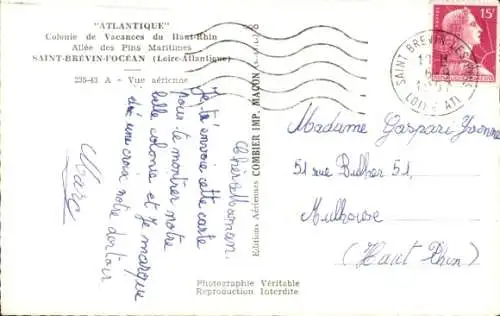 "ATLANTIQUE"
Colonie de Vacances du Haut-Rhin
Allée des Pins Maritimes
SAINT-BRÉVIN-L'OCÉAN (Loire-Atlantique)
236-43 A - Vue aérienne
Chère Maman.
Je t'envoie cette carte
pour te montrer notre
belle colonie et je marque
une croix notre dortoir
Marc
Editions Aériennes COMBIER IMP. MACON
15F
SAINT BREVIN
LOIRE ATL.
Madame Gaspari Yvonne
51 rue 51.
Mulhouse
(Haut Rhin)
Photographie Véritable
Reproduction Interdite